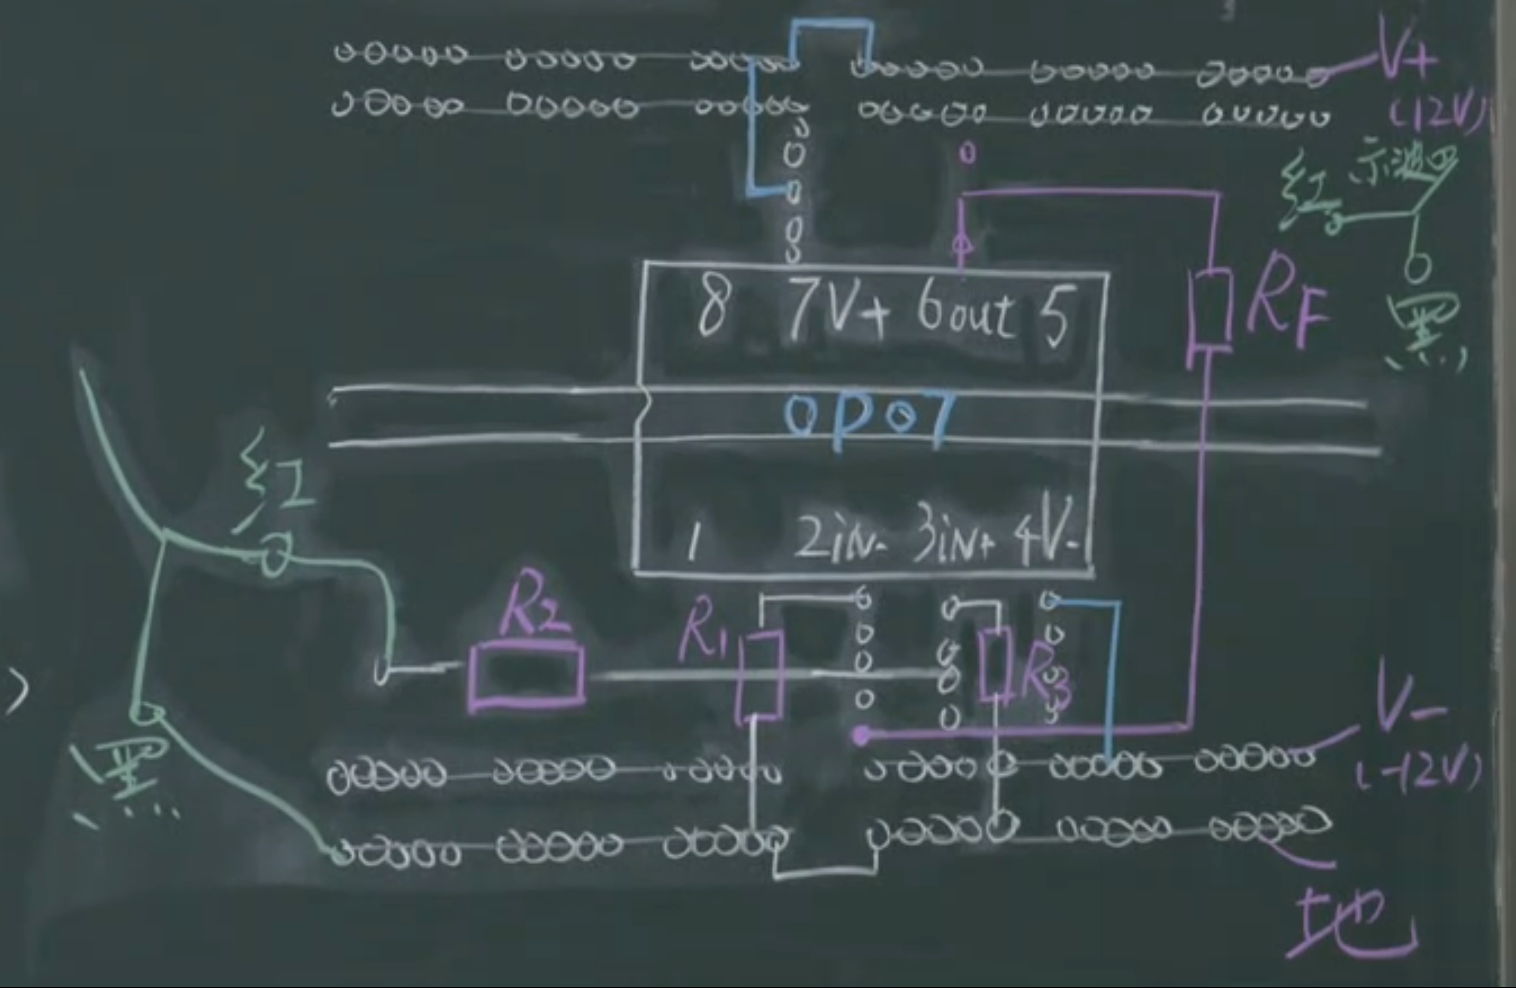 V+
(12V)
红 示波
黑
8 7V+ 6out 5
RF
OP07
红
1 2iN- 3iN+ 4V-
R2
R1
R3
V-
(-12V)
黑
地